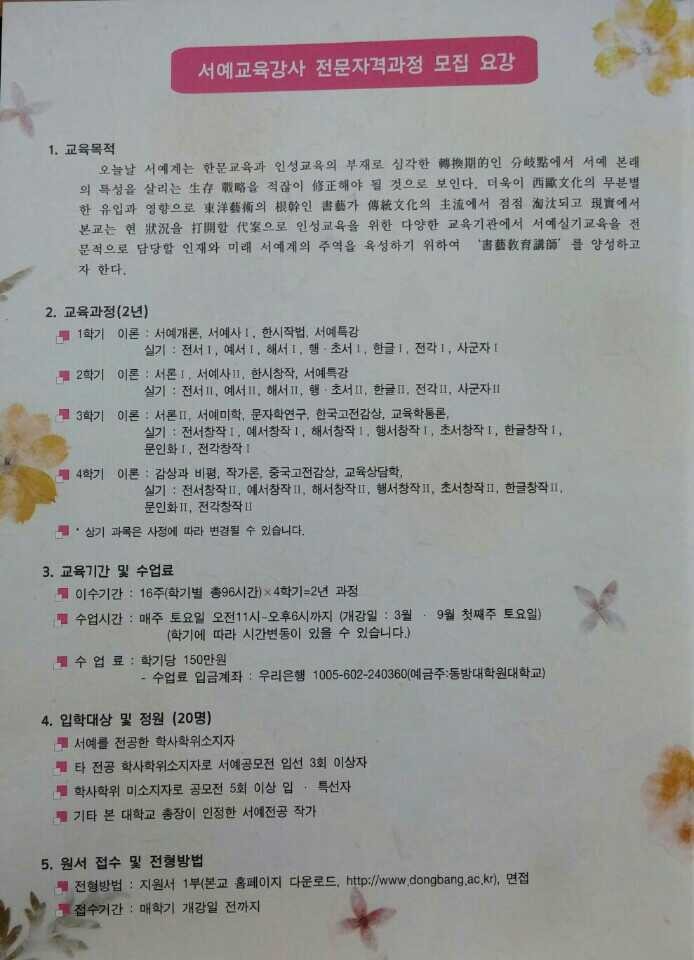 서예교육강사 전문자격과정 모집 요강
1. 교육목적
오늘날 서예계는 한문교육과 인성교육의 부재로 심각한 轉換期的인 分岐點에서 서예 본래
의 특성을 살리는 生存 戰略을 적잖이 修正해야 될 것으로 보인다. 더욱이 西歐文化의 무분별
한 유입과 영향으로 東洋藝術의 根幹인 書藝가 傳統文化의 主流에서 점점 淘汰되고 現實에서
본교는 현 狀況을 打開할 代案으로 인성교육을 위한 다양한 교육기관에서 서예실기교육을 전
문적으로 담당할 인재와 미래 서예계의 주역을 육성하기 위하여 '書藝敎育講師'를 양성하고
자 한다.
2. 교육과정(2년)
1학기 이론 : 서예개론, 서예사Ⅰ, 한시작법, 서예특강
실기 : 전서Ⅰ, 예서Ⅰ, 해서Ⅰ, 행·초서Ⅰ, 한글Ⅰ, 전각Ⅰ, 사군자Ⅰ
2학기 이론 : 서론Ⅰ, 서예사Ⅱ, 한시창작, 서예특강
실기 : 전서Ⅱ, 예서Ⅱ, 해서Ⅱ, 행·초서Ⅱ, 한글Ⅱ, 전각Ⅱ, 사군자Ⅱ
3학기 이론 : 서론Ⅱ, 서예미학, 문자학연구, 한국고전감상, 교육학통론,
실기 : 전서창작Ⅰ, 예서창작Ⅰ, 해서창작Ⅰ, 행서창작Ⅰ, 초서창작Ⅰ, 한글창작Ⅰ,
문인화Ⅰ, 전각창작Ⅰ
4학기 이론 : 감상과 비평, 작가론, 중국고전감상, 교육상담학,
실기 : 전서창작Ⅱ, 예서창작Ⅱ, 해서창작Ⅱ, 행서창작Ⅱ, 초서창작Ⅱ, 한글창작Ⅱ,
문인화Ⅱ, 전각창작Ⅱ
* 상기 과목은 사정에 따라 변경될 수 있습니다.
3. 교육기간 및 수업료
이수기간 : 16주(학기별 총96시간)×4학기=2년 과정
수업시간 : 매주 토요일 오전11시~오후6시까지 (개강일 : 3월 · 9월 첫째주 토요일)
(학기에 따라 시간변동이 있을 수 있습니다.)
수 업 료 : 학기당 150만원
- 수업료 입금계좌 : 우리은행 1005-602-240360(예금주:동방대학원대학교)
4. 입학대상 및 정원 (20명)
서예를 전공한 학사학위소지자
타 전공 학사학위소지자로 서예공모전 입선 3회 이상자
학사학위 미소지자로 공모전 5회 이상 입 · 특선자
기타 본 대학교 총장이 인정한 서예전공 작가
5. 원서 접수 및 전형방법
전형방법 : 지원서 1부(본교 홈페이지 다운로드, http://www.dongbang.ac.kr), 면접
접수기간 : 매학기 개강일 전까지